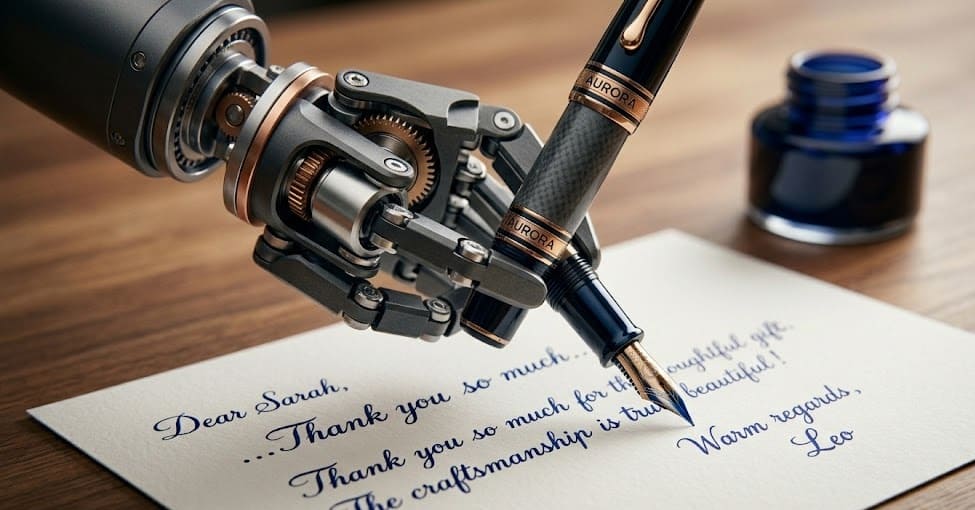 AURORA
AURORA
Dear Sarah,
...Thank you so much...
Thank you so much for the thoughtful gift.
The craftsmanship is truly beautiful!
Warm regards,
Leo